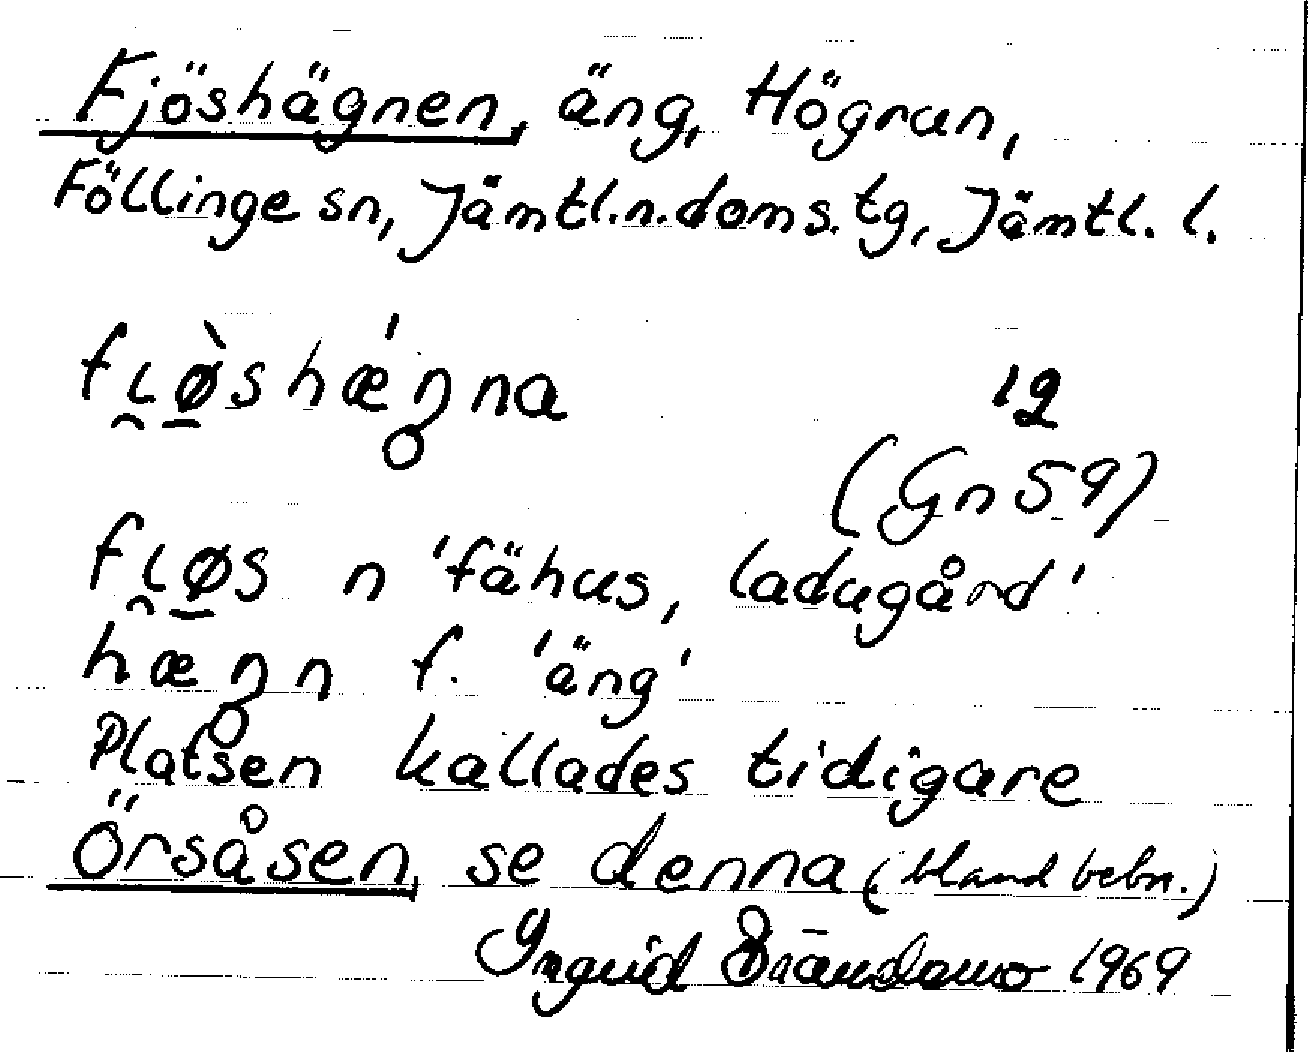 Fjöshägnen, äng, Högran,
Föllinge sn, Jämtl.n.doms.tg, Jämtl. l.
fi̯ø̲̀shǽŋ̊na 12
(Gn 59)
fi̯ø̲s n 'fähus, ladugård'
hæŋ̊n f. 'äng'
Platsen kallades tidigare
Örsåsen, se denna (bland bebn.)
Ingrid 1969